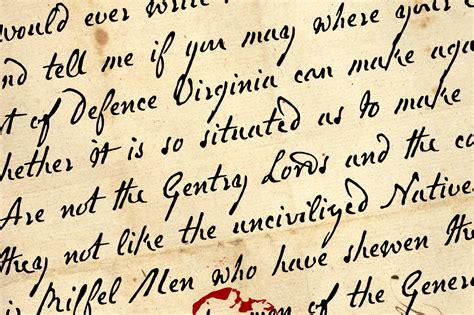 would ever write
nd tell me if you may where your
t of Defence Virginia can make aga
hether it is so situated as to make
Are not the Gentry Lords and the
they not like the uncivilized Native
Riffel Men who have shewen
of the Gener